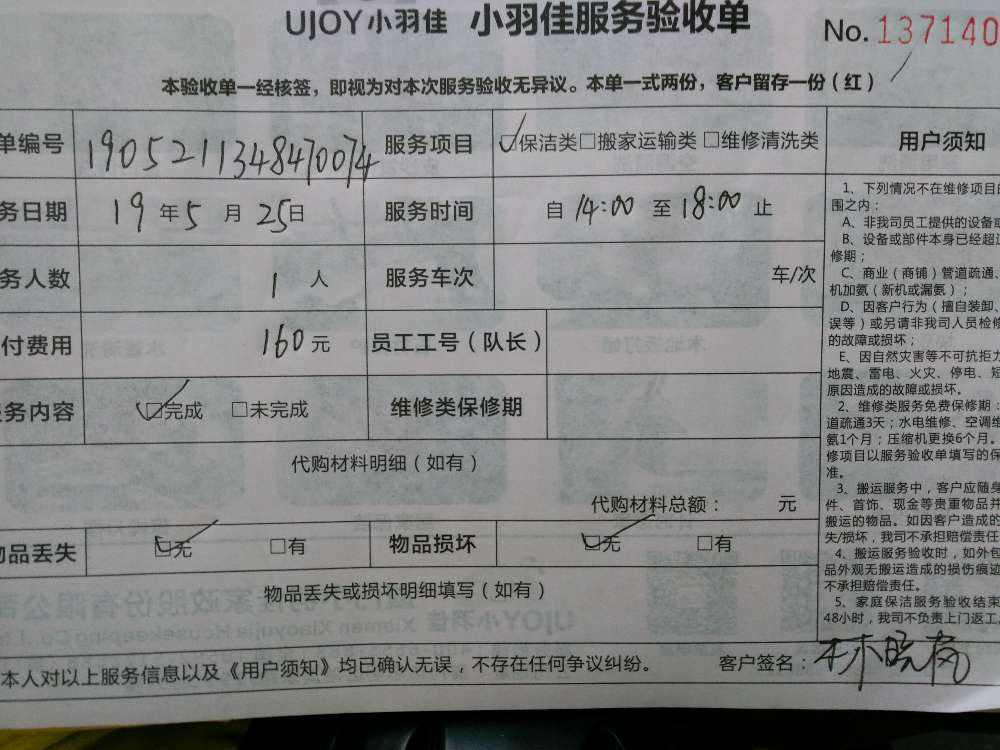 UJOY小羽佳 小羽佳服务验收单 No.137140
本验收单一经核签，即视为对本次服务验收无异议。本单一式两份，客户留存一份（红）
单编号 1905211348470074 服务项目 ☑保洁类□搬家运输类□维修清洗类 用户须知
务日期 19年5月25日 服务时间 自14:00至18:00止
务人数 1人 服务车次 车/次
付费用 160元 员工工号（队长）
务内容 ☑完成 □未完成 维修类保修期
代购材料明细（如有）
代购材料总额： 元
物品丢失 ☑无 □有 物品损坏 ☑无 □有
物品丢失或损坏明细填写（如有）
本人对以上服务信息以及《用户须知》均已确认无误，不存在任何争议纠纷。 客户签名：林晓岗
1、下列情况不在维修项目的
围之内：
A、非我司员工提供的设备或
B、设备或部件本身已经超过
修期；
C、商业（商铺）管道疏通、
机加氨（新机或漏氨）；
D、因客户行为（擅自装卸、
误等）或另请非我司人员检修
的故障或损坏；
E、因自然灾害等不可抗拒力
地震、雷电、火灾、停电、短
原因造成的故障或损坏。
2、维修类服务免费保修期：
道疏通3天；水电维修、空调维
氨1个月；压缩机更换6个月。
修项目以服务验收单填写的保
准。
3、搬运服务中，客户应随身
件、首饰、现金等贵重物品并
搬运的物品。如因客户造成的
失/损坏，我司不承担赔偿责任
4、搬运服务验收时，如外包
品外观无搬运造成的损伤痕迹
不承担赔偿责任。
5、家庭保洁服务验收结束
48小时，我司不负责上门返工。